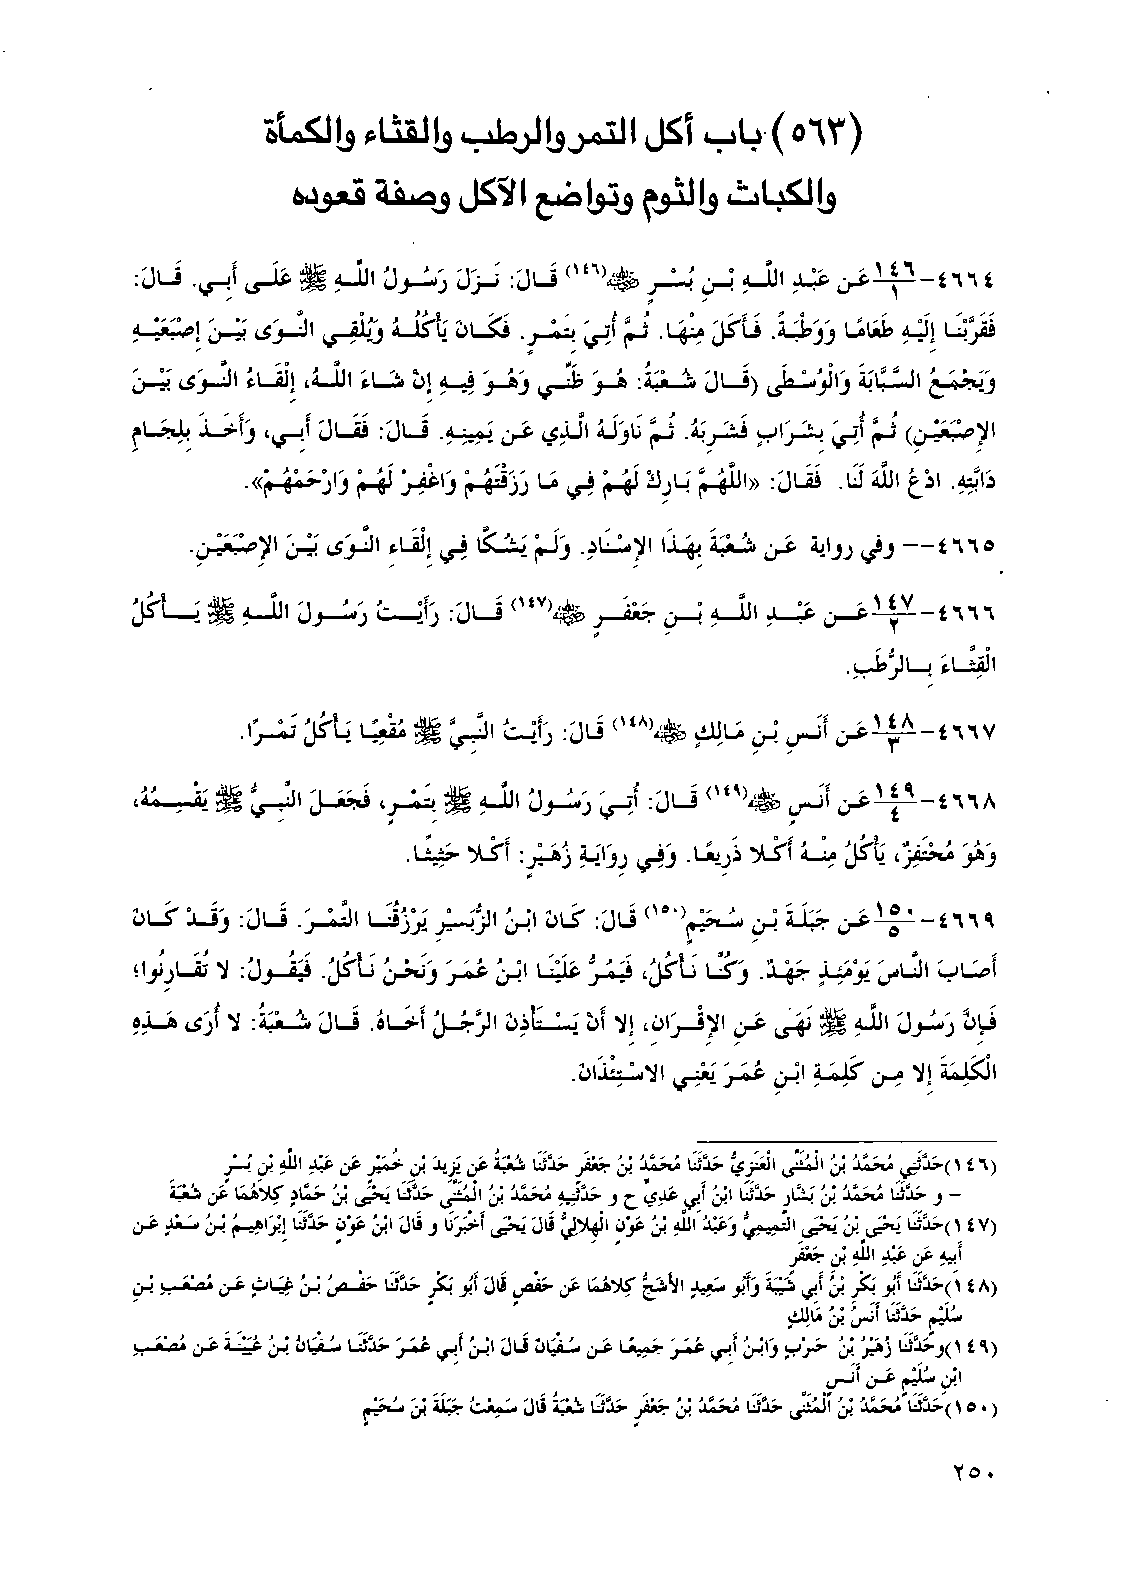 (٥٦٣) باب أكل التمر والرطب والقثاء والكمأة
والكباث والثوم وتواضع الآكل وصفة قعوده
٤٦٦٤-١٤٦/١ عَن عَبْدِ اللَّهِ بْنِ بُسْرٍ ﷺ(١٤٦) قَالَ: نَزَلَ رَسُولُ اللَّهِ ﷺ عَلَى أَبِي. قَالَ:
فَقَرَّبْنَا إِلَيْهِ طَعَامًا وَوَطْبَةً. فَأَكَلَ مِنْهَا. ثُمَّ أُتِيَ بِتَمْرٍ. فَكَانَ يَأْكُلُهُ وَيُلْقِي النَّوَى بَيْنَ إِصْبَعَيْهِ
وَيَجْمَعُ السَّبَّابَةَ وَالْوُسْطَى (قَالَ شُعْبَةُ: هُوَ ظَنِّي وَهُوَ فِيهِ إِنْ شَاءَ اللَّهُ، إِلْقَاءُ النَّوَى بَيْنَ
الإِصْبَعَيْنِ) ثُمَّ أُتِيَ بِشَرَابٍ فَشَرِبَهُ. ثُمَّ نَاوَلَهُ الَّذِي عَن يَمِينِهِ. قَالَ: فَقَالَ أَبِي، وَأَخَذَ بِلِجَامِ
دَابَّتِهِ. ادْعُ اللَّهَ لَنَا. فَقَالَ: «اللَّهُمَّ بَارِكْ لَهُمْ فِي مَا رَزَقْتَهُمْ وَاغْفِرْ لَهُمْ وَارْحَمْهُمْ».
٤٦٦٥-- وفي رواية عَن شُعْبَةَ بِهَذَا الإِسْنَادِ. وَلَمْ يَشُكَّا فِي إِلْقَاءِ النَّوَى بَيْنَ الإِصْبَعَيْنِ.
٤٦٦٦-١٤٧/٢ عَن عَبْدِ اللَّهِ بْنِ جَعْفَرٍ ﷺ(١٤٧) قَالَ: رَأَيْتُ رَسُولَ اللَّهِ ﷺ يَأْكُلُ
الْقِثَّاءَ بِالرُّطَبِ.
٤٦٦٧-١٤٨/٣ عَن أَنَسِ بْنِ مَالِكٍ ﷺ(١٤٨) قَالَ: رَأَيْتُ النَّبِيَّ ﷺ مُقْعِيًا يَأْكُلُ تَمْرًا.
٤٦٦٨-١٤٩/٤ عَن أَنَسٍ ﷺ(١٤٩) قَالَ: أُتِيَ رَسُولُ اللَّهِ ﷺ بِتَمْرٍ، فَجَعَلَ النَّبِيُّ ﷺ يَقْسِمُهُ،
وَهُوَ مُحْتَفِزٌ، يَأْكُلُ مِنْهُ أَكْلا ذَرِيعًا. وَفِي رِوَايَةِ زُهَيْرٍ: أَكْلا حَثِيثًا.
٤٦٦٩-١٥٠/٥ عَن جَبَلَةَ بْنِ سُحَيْمٍ(١٥٠) قَالَ: كَانَ ابْنُ الزُّبَيْرِ يَرْزُقُنَا التَّمْرَ. قَالَ: وَقَدْ كَانَ
أَصَابَ النَّاسَ يَوْمَئِذٍ جَهْدٌ. وَكُنَّا نَأْكُلُ، فَيَمُرُّ عَلَيْنَا ابْنُ عُمَرَ وَنَحْنُ نَأْكُلُ. فَيَقُولُ: لا تُقَارِنُوا؛
فَإِنَّ رَسُولَ اللَّهِ ﷺ نَهَى عَنِ الإِقْرَانِ، إِلا أَنْ يَسْتَأْذِنَ الرَّجُلُ أَخَاهُ. قَالَ شُعْبَةُ: لا أُرَى هَذِهِ
الْكَلِمَةَ إِلا مِن كَلِمَةِ ابْنِ عُمَرَ يَعْنِي الاسْتِئْذَانَ.
(١٤٦)حَدَّثَنِي مُحَمَّدُ بْنُ الْمُثَنَّى الْعَنَزِيُّ حَدَّثَنَا مُحَمَّدُ بْنُ جَعْفَرٍ حَدَّثَنَا شُعْبَةُ عَن يَزِيدَ بْنِ خُمَيْرٍ عَن عَبْدِ اللَّهِ بْنِ بُسْرٍ
– و حَدَّثَنَا مُحَمَّدُ بْنُ بَشَّارٍ حَدَّثَنَا ابْنُ أَبِي عَدِيٍّ ح و حَدَّثَنِيهِ مُحَمَّدُ بْنُ الْمُثَنَّى حَدَّثَنَا يَحْيَى بْنُ حَمَّادٍ كِلاهُمَا عَن شُعْبَةَ
(١٤٧)حَدَّثَنَا يَحْيَى بْنُ يَحْيَى التَّمِيمِيُّ وَعَبْدُ اللَّهِ بْنُ عَوْنٍ الْهِلالِيُّ قَالَ يَحْيَى أَخْبَرَنَا و قَالَ ابْنُ عَوْنٍ حَدَّثَنَا إِبْرَاهِيمُ بْنُ سَعْدٍ عَن
أَبِيهِ عَن عَبْدِ اللَّهِ بْنِ جَعْفَرٍ
(١٤٨)حَدَّثَنَا أَبُو بَكْرِ بْنُ أَبِي شَيْبَةَ وَأَبُو سَعِيدٍ الأَشَجُّ كِلاهُمَا عَن حَفْصٍ قَالَ أَبُو بَكْرٍ حَدَّثَنَا حَفْصُ بْنُ غِيَاثٍ عَن مُصْعَبِ بْنِ
سُلَيْمٍ حَدَّثَنَا أَنَسُ بْنُ مَالِكٍ
(١٤٩)وحَدَّثَنَا زُهَيْرُ بْنُ حَرْبٍ وَابْنُ أَبِي عُمَرَ جَمِيعًا عَن سُفْيَانَ قَالَ ابْنُ أَبِي عُمَرَ حَدَّثَنَا سُفْيَانُ بْنُ عُيَيْنَةَ عَن مُصْعَبِ
ابْنِ سُلَيْمٍ عَن أَنَسٍ
(١٥٠)حَدَّثَنَا مُحَمَّدُ بْنُ الْمُثَنَّى حَدَّثَنَا مُحَمَّدُ بْنُ جَعْفَرٍ حَدَّثَنَا شُعْبَةُ قَالَ سَمِعْتُ جَبَلَةَ بْنَ سُحَيْمٍ
٢٥٠